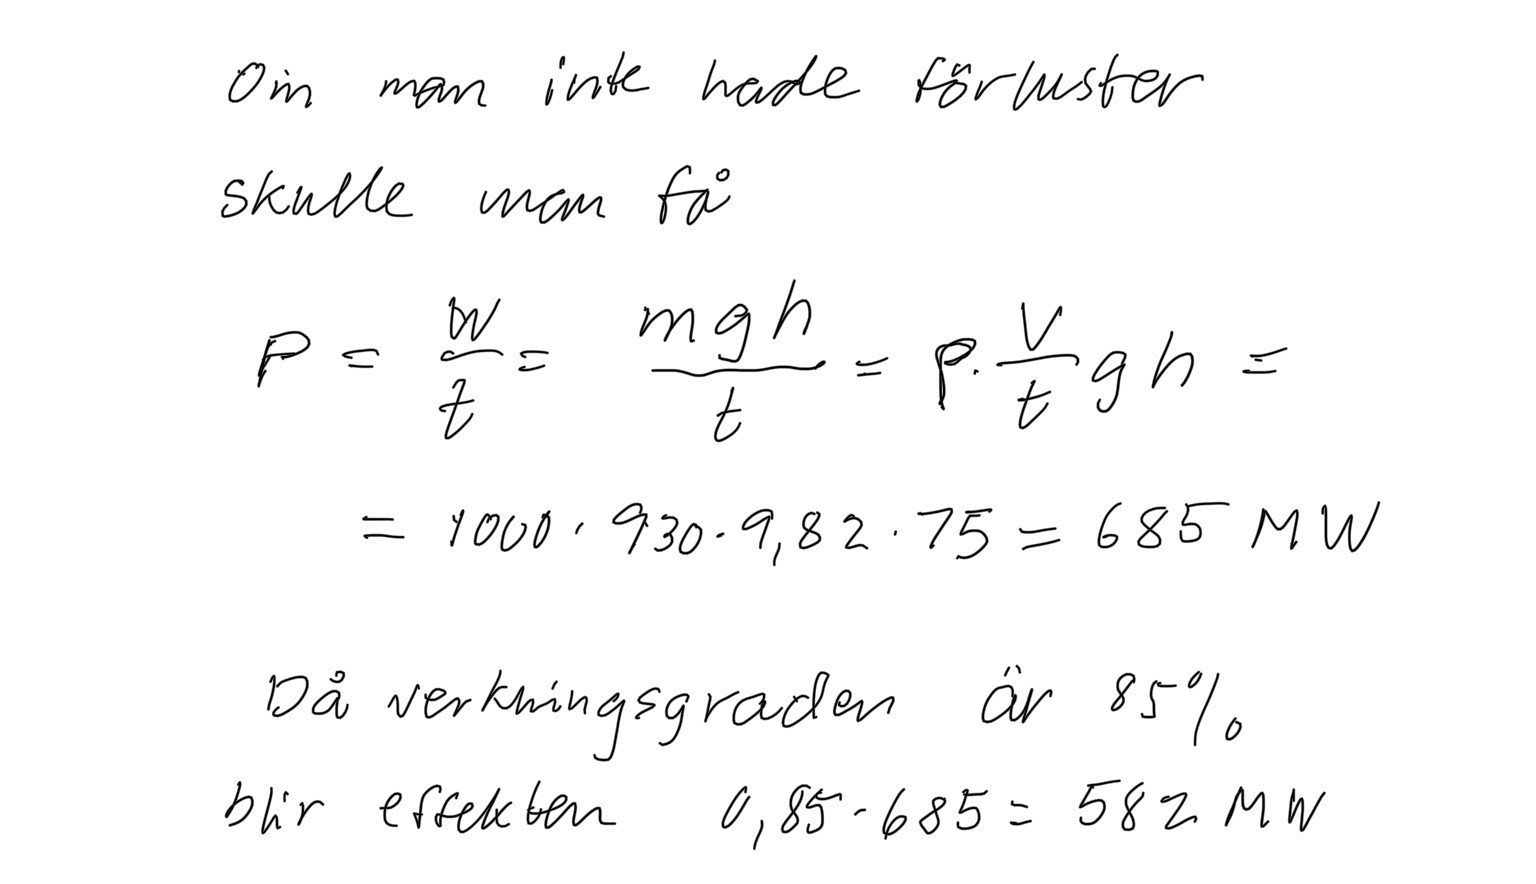 Om man inte hade förluster
skulle man få
P = W/t = mgh/t = ρ · V/t gh =
= 1000 · 930 · 9,82 · 75 = 685 MW
Då verkningsgraden är 85%
blir effekten 0,85 · 685 = 582 MW